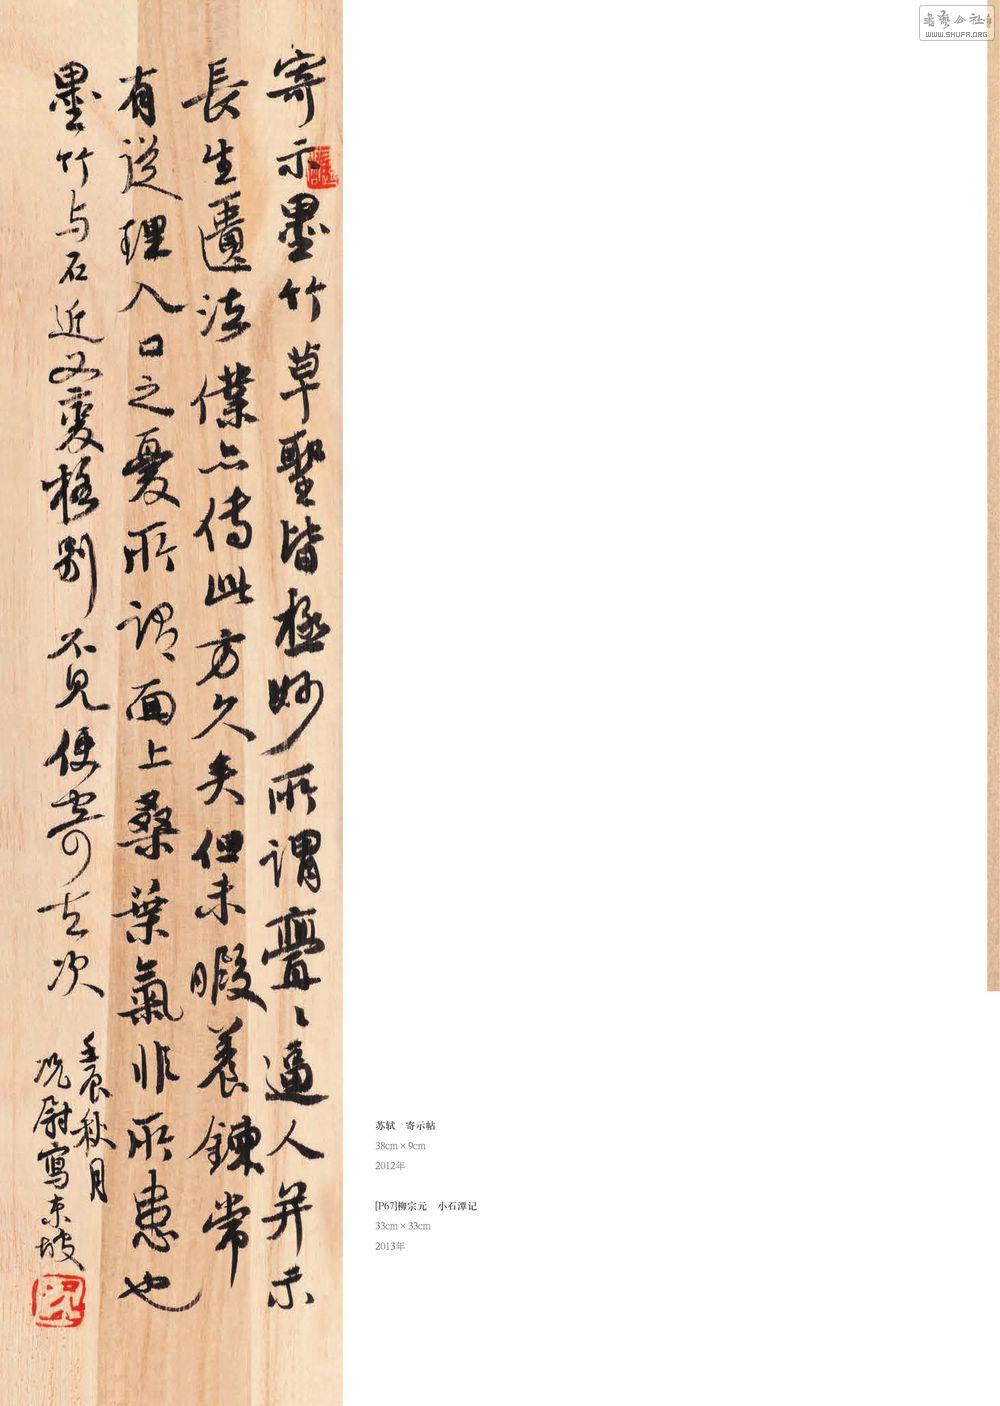 寄示墨竹草聖皆極妙所謂亹亹逼人并示
長生匱法僕亦傳此方久矣但未暇養鍊常
有從理入口之憂所謂面上桑葉氣非所患也
墨竹与石近又變格別不見便寄去次
壬辰秋月
况尉寫東坡
苏轼　寄示帖
38cm×9cm
2012年
[P67]柳宗元　小石潭记
33cm×33cm
2013年
书艺公社
WWW.SHUFA.ORG